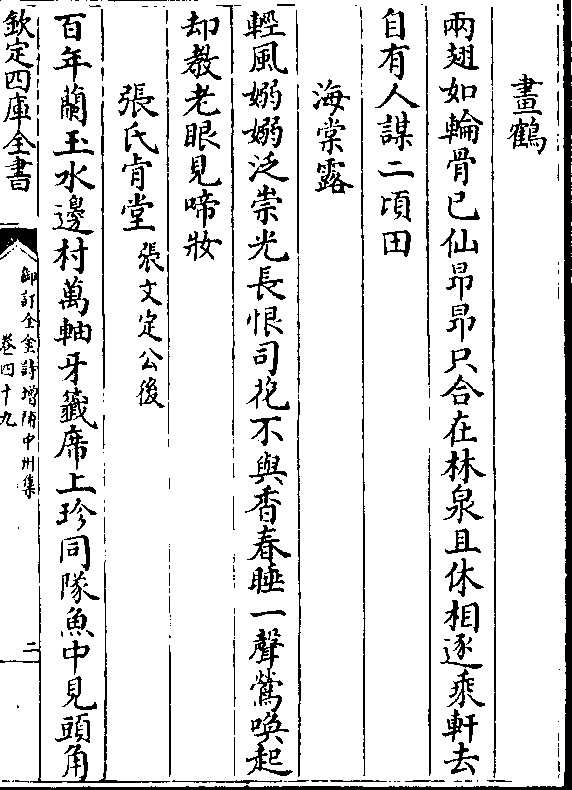 畫鶴
兩翅如輪骨已仙昂昂只合在林泉且休相逐乘軒去
自有人謀二頃田
海棠露
輕風嫋嫋泛崇光長恨司花不與香春睡一聲鶯喚起
却教老眼見啼妝
張氏肯堂張文定公後
百年蘭玉水邊村萬軸牙籤席上珍同隊魚中見頭角
欽定四庫全書
御訂全金詩增補中州集
卷四十九
二